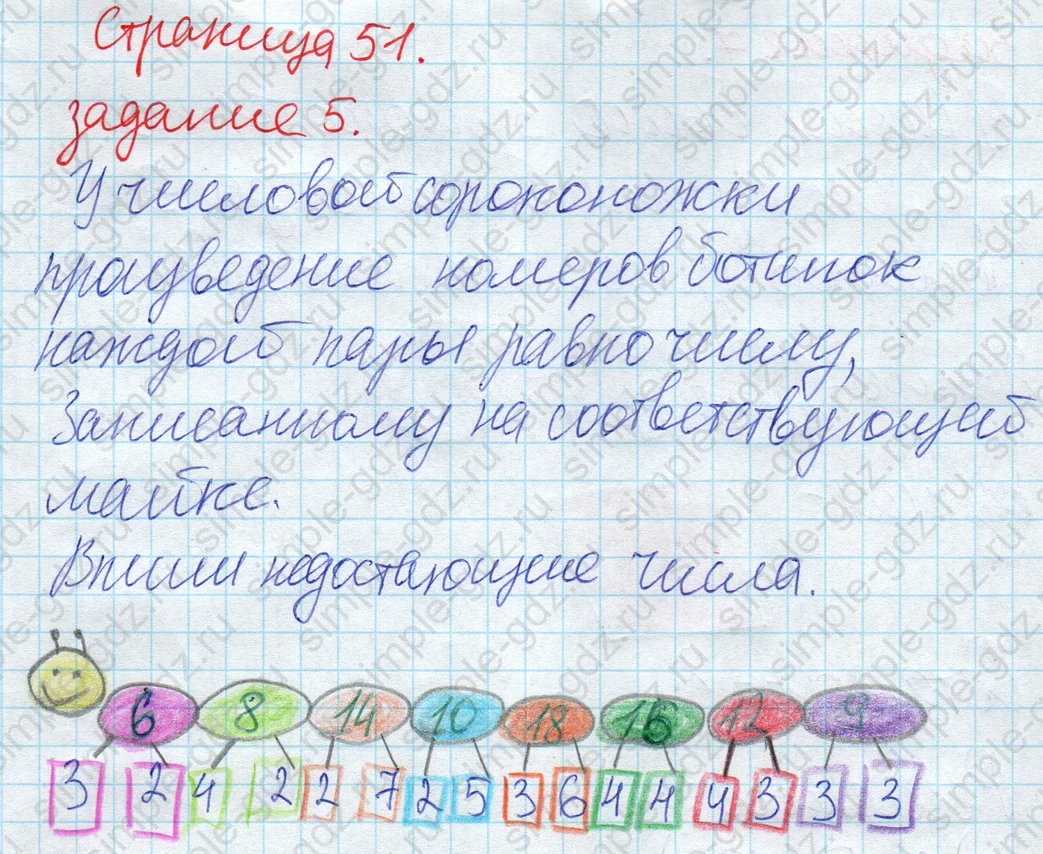 Страница 51.
задание 5.
У числовой сороконожки
произведение номеров ботинок
каждой пары равно числу,
Записанному на соответствующей
майке.
Впиши недостающие числа.
6 8 14 10 18 16 12 9
3 2 4 2 2 7 2 5 3 6 4 4 4 3 3 3
simple-gdz.ru